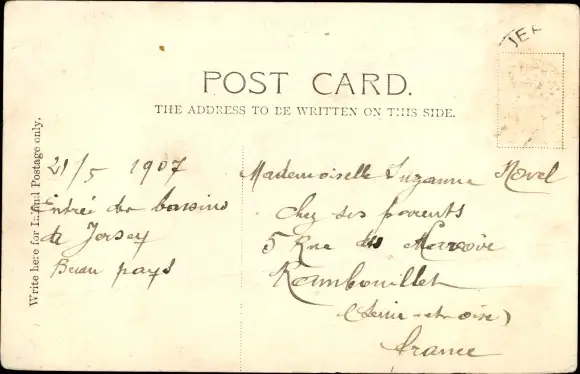 JER
POST CARD.
THE ADDRESS TO BE WRITTEN ON THIS SIDE.
Write here for Inland Postage only.
21/5 1907
Entrée des bassins
de Jersey
Beau pays
Mademoiselle Suzanne Novel
chez ses parents
5 Rue de
Rambouillet
(Seine-et-oise)
France